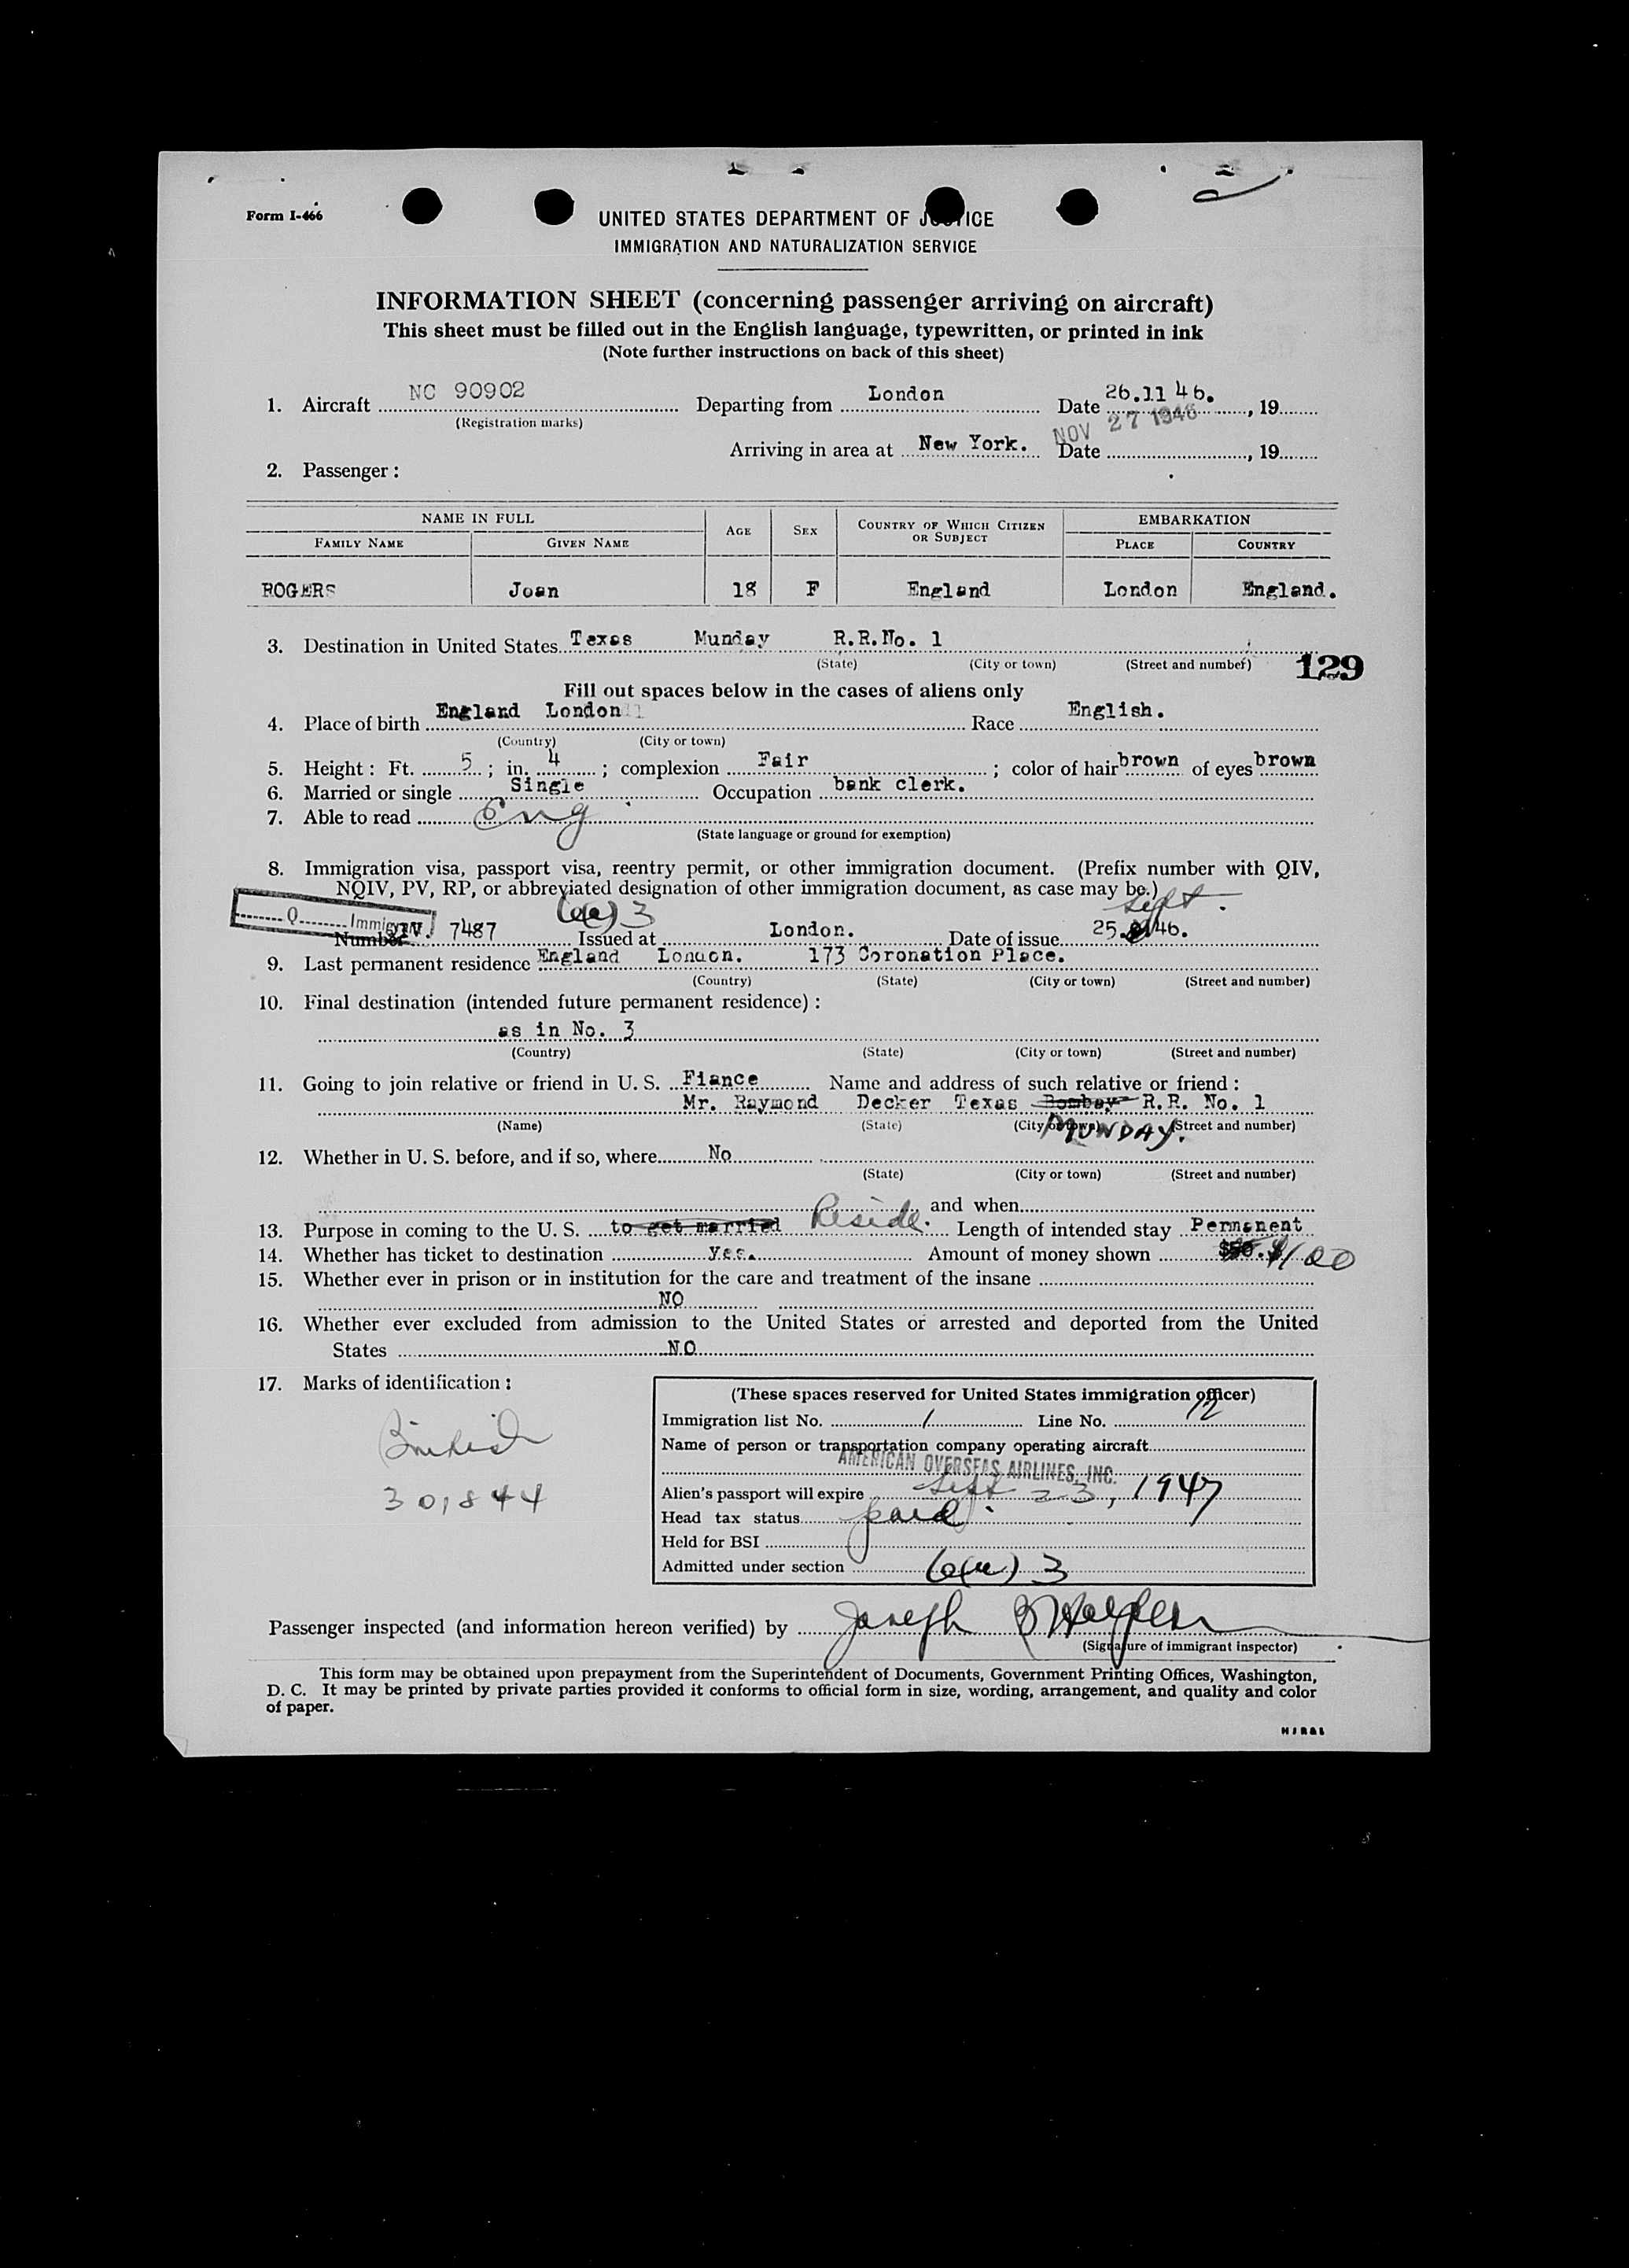 Form I-466
UNITED STATES DEPARTMENT OF JUSTICE
IMMIGRATION AND NATURALIZATION SERVICE
INFORMATION SHEET (concerning passenger arriving on aircraft)
This sheet must be filled out in the English language, typewritten, or printed in ink
(Note further instructions on back of this sheet)
1. Aircraft NC 90902 Departing from London Date 26.11 46. , 19
(Registration marks)
Arriving in area at New York. Date NOV 27 1946 , 19
2. Passenger :
NAME IN FULL AGE SEX COUNTRY OF WHICH CITIZEN OR SUBJECT EMBARKATION
FAMILY NAME GIVEN NAME PLACE COUNTRY
ROGERS Joan 18 F England London England.
3. Destination in United States Texas Munday R.R.No. 1
(State) (City or town) (Street and number) 129
Fill out spaces below in the cases of aliens only
4. Place of birth England London Race English.
(Country) (City or town)
5. Height : Ft. 5 ; in. 4 ; complexion Fair ; color of hair brown of eyes brown
6. Married or single Single Occupation bank clerk.
7. Able to read Eng
(State language or ground for exemption)
8. Immigration visa, passport visa, reentry permit, or other immigration document. (Prefix number with QIV,
NQIV, PV, RP, or abbreviated designation of other immigration document, as case may be.)
Q Immig IV. 7487 6(a) 3 Sept.
Number Issued at London. Date of issue 25. 46.
9. Last permanent residence England London. 173 Coronation Place.
(Country) (State) (City or town) (Street and number)
10. Final destination (intended future permanent residence) :
as in No. 3
(Country) (State) (City or town) (Street and number)
11. Going to join relative or friend in U. S. Fiance Name and address of such relative or friend :
Mr. Raymond Decker Texas Bombay R.R. No. 1
(Name) (State) (City or town) (Street and number)
MUNDAY.
12. Whether in U. S. before, and if so, where No
(State) (City or town) (Street and number)
and when
13. Purpose in coming to the U. S. to get married Reside. Length of intended stay Permanent
14. Whether has ticket to destination yes. Amount of money shown $50. $100
15. Whether ever in prison or in institution for the care and treatment of the insane
NO
16. Whether ever excluded from admission to the United States or arrested and deported from the United
States NO
17. Marks of identification :
British
30,844
(These spaces reserved for United States immigration officer)
Immigration list No. 1 Line No. 12
Name of person or transportation company operating aircraft
AMERICAN OVERSEAS AIRLINES, INC.
Alien's passport will expire Sept 23, 1947
Head tax status paid
Held for BSI
Admitted under section 6(a) 3
Passenger inspected (and information hereon verified) by Joseph B Halpern
(Signature of immigrant inspector)
This form may be obtained upon prepayment from the Superintendent of Documents, Government Printing Offices, Washington,
D. C. It may be printed by private parties provided it conforms to official form in size, wording, arrangement, and quality and color
of paper.